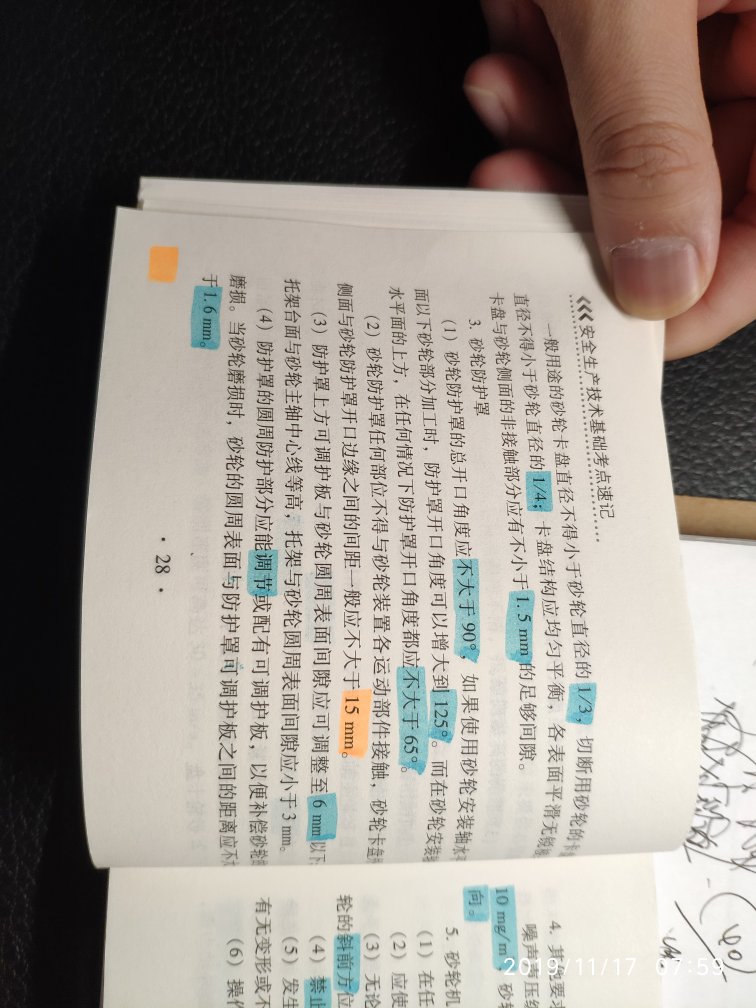 《《《安全生产技术基础考点速记
一般用途的砂轮卡盘直径不得小于砂轮直径的1/3，切断用砂轮的卡盘
直径不得小于砂轮直径的1/4；卡盘结构应均匀平衡，各表面平滑无锐
卡盘与砂轮侧面的非接触部分应有不小于1.5 mm的足够间隙。
3. 砂轮防护罩
（1）砂轮防护罩的总开口角度应不大于90°，如果使用砂轮安装轴水
面以下砂轮部分加工时，防护罩开口角度可以增大到125°。而在砂轮安装
水平面的上方，在任何情况下防护罩开口角度都应不大于65°。
（2）砂轮防护罩任何部位不得与砂轮装置各运动部件接触，砂轮卡盘
侧面与砂轮防护罩开口边缘之间的间距一般应不大于15 mm。
（3）防护罩上方可调护板与砂轮圆周表面间隙应可调整至6 mm以下
托架台面与砂轮主轴中心线等高，托架与砂轮圆周表面间隙应小于3 mm。
（4）防护罩的圆周防护部分应能调节或配有可调护板，以便补偿砂轮的
磨损。当砂轮磨损时，砂轮的圆周表面与防护罩可调护板之间的距离应不大
于1.6 mm。
· 28 ·
4.
噪声
10 mg/m
向。
5. 砂轮机
（1）在任
（2）应使
（3）无论
轮的斜前方位
（4）禁止
（5）发生
有无变形或不
（6）操作
2019/11/17 07:59